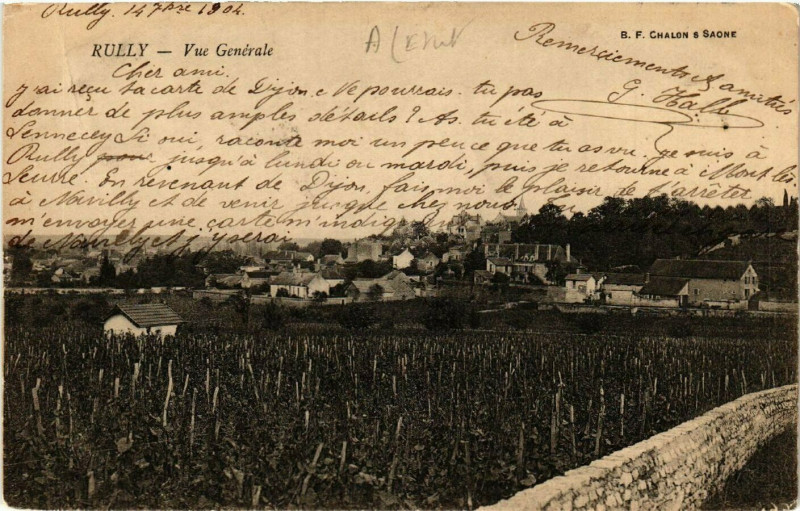 Rully, 14 7bre 1904.
RULLY — Vue Générale
B. F. CHALON S SAONE
Cher ami.
J'ai reçu ta carte de Dijon. Ne pourrais-tu pas
donner de plus amples détails? As-tu été à
Sennecey. Si oui, raconte moi un peu ce que tu as vu. Je suis à
Rully jusqu'à lundi ou mardi, puis je retourne à Mont les
Seurre. En revenant de Dijon, fais-moi le plaisir de t'arrêter
à Navilly et de venir jusque chez nous.
m'envoyer une carte m'indiq
de Navilly et j'y serai
Remerciements et amitiés
G.